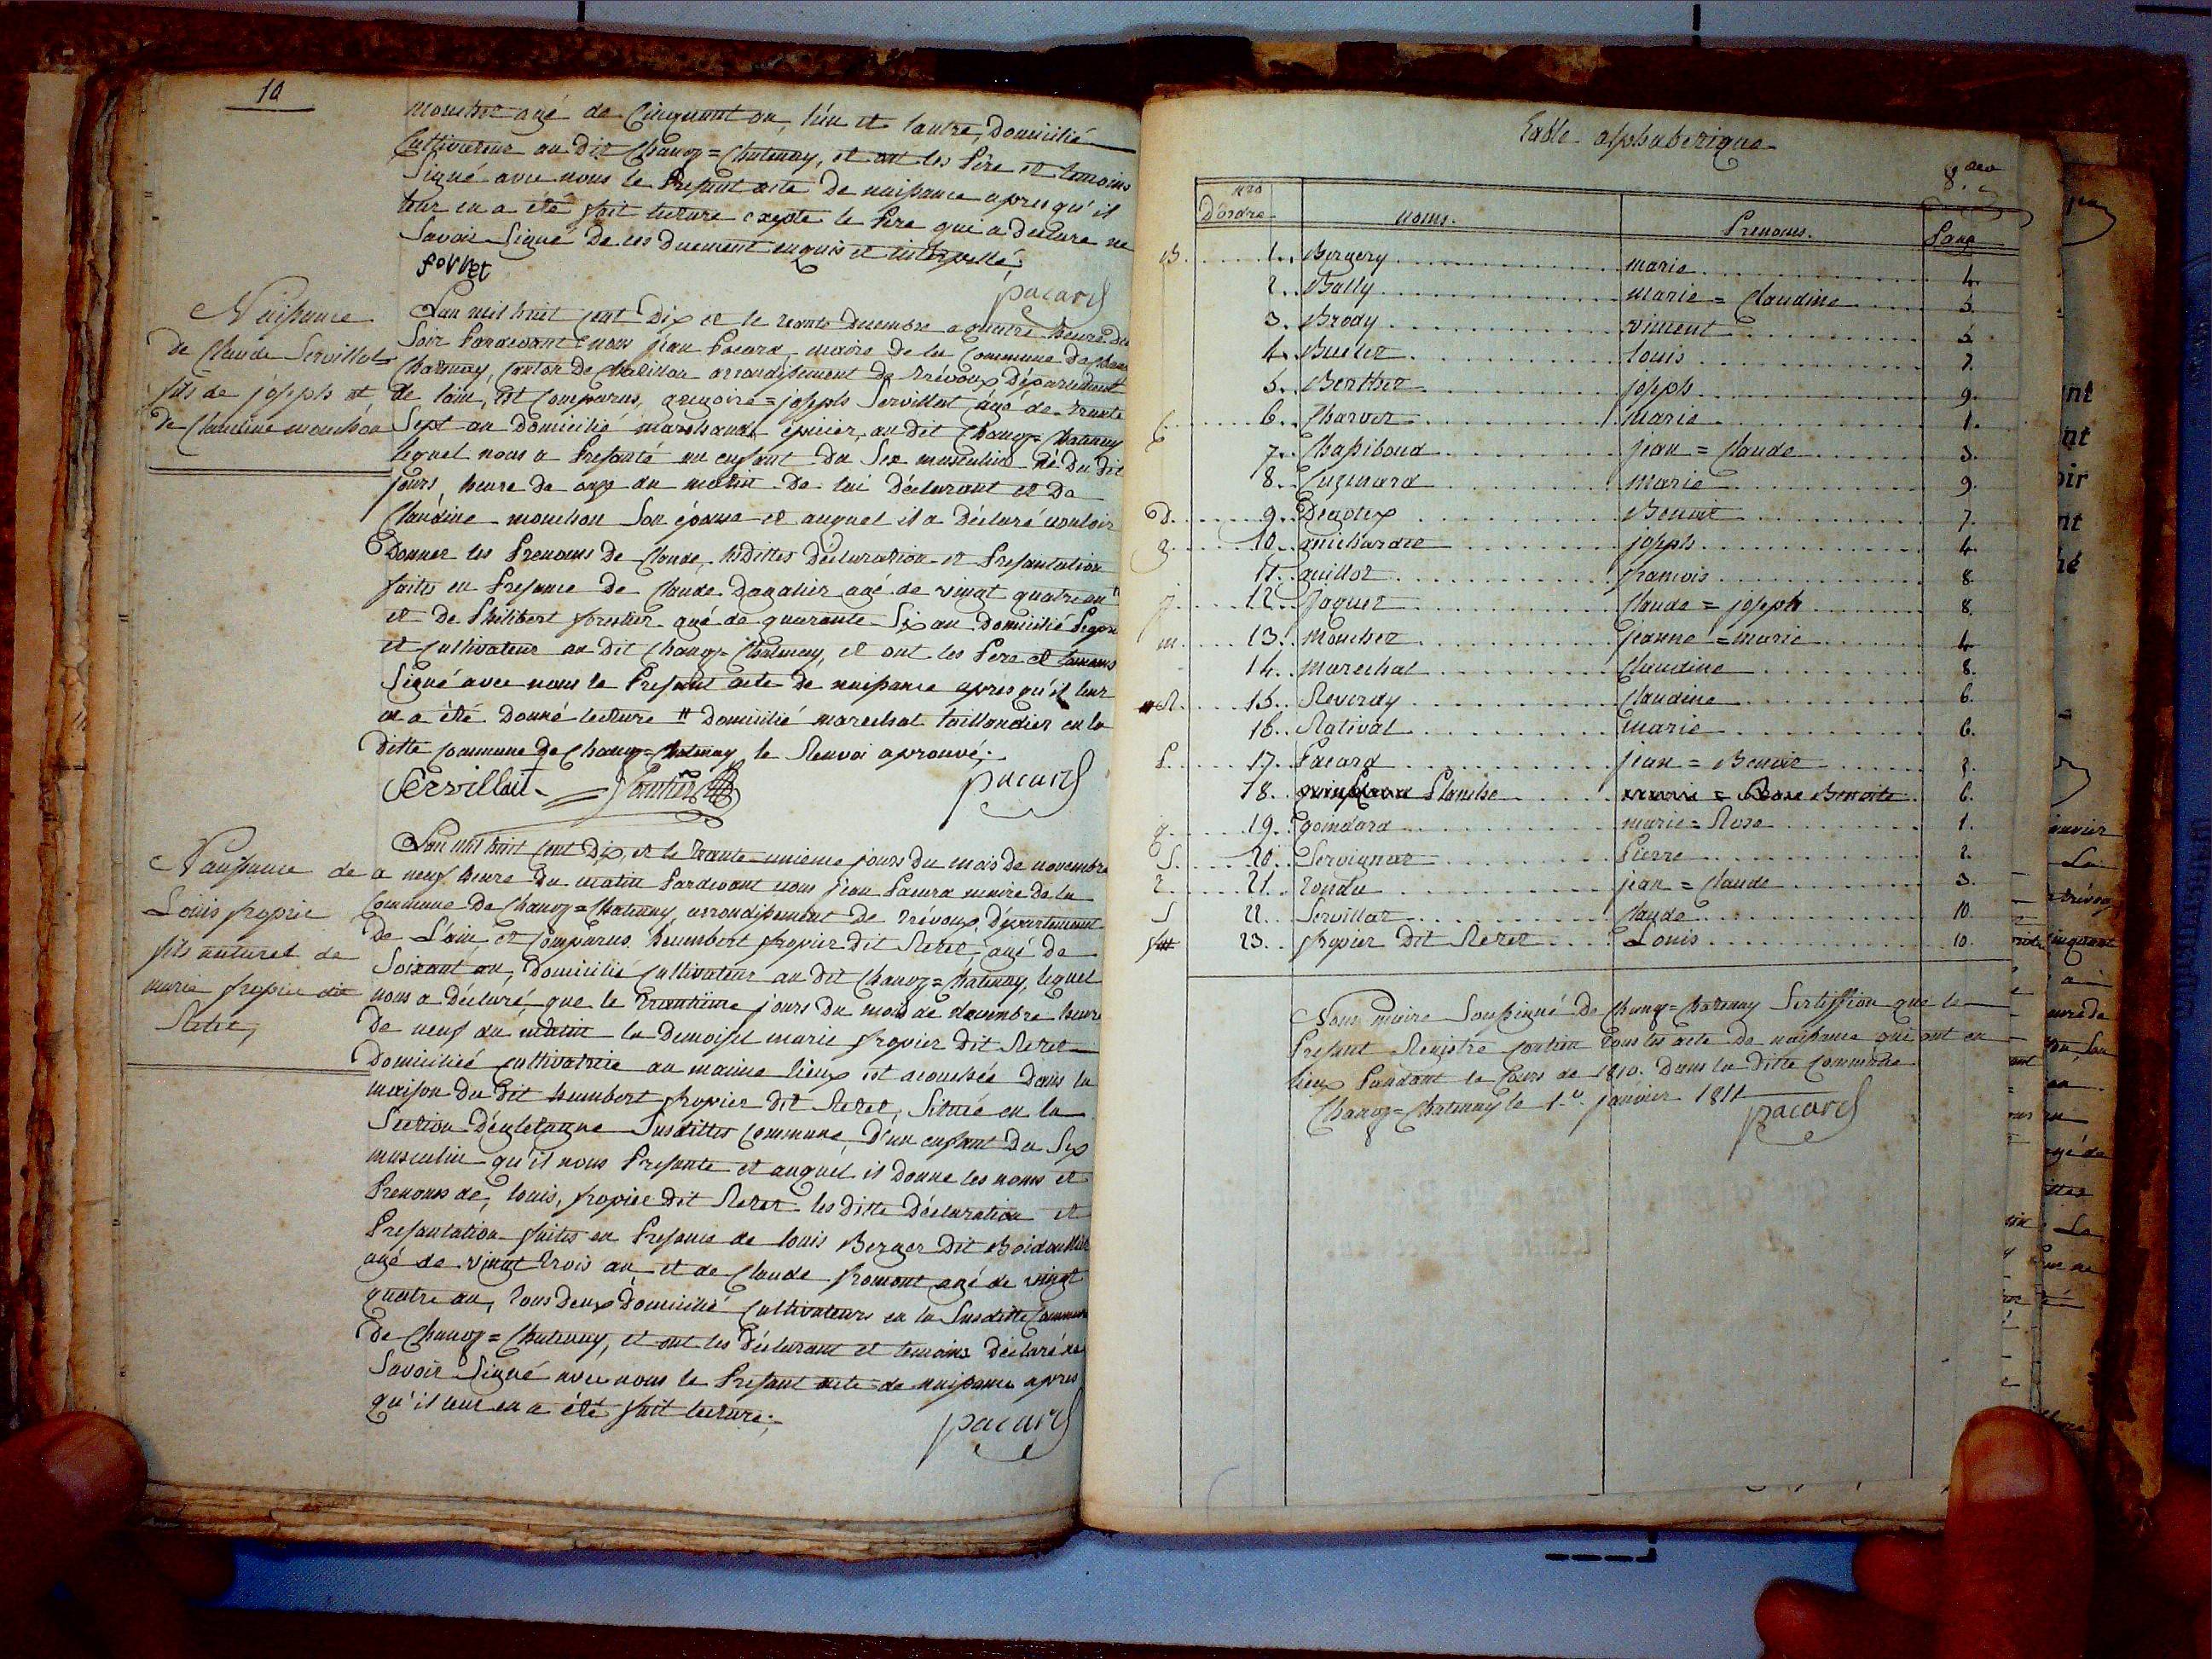 10
mouchet agé de Cinquant an, l'un et l'autre, Domicilié
Cultivateur au dit Chanoz=Chatenay, et ont les Père et temoins
Signé avec nous le Present acte de naissance apres qu'il
leur en a été fait lecture excepte le Pere qui a declare ne
Savoir Signé de ces duement enquis et interpellé,
pacard
Naissance
de Claude Servillat
fils de joseph et
de Claudine mouchon
L'an mil huit cent Dix et le trante decembre a quatre heure du
Soir Pardevant nous jean Pacard maire de la Commune de Chanoz
Chatenay, canton de Chatillon arrondissement de trévoux Département
de l'ain, est comparus, gregoire=joseph Servillat, agé de trante
Sept an Domicilié marchand épicier, au dit Chanoz=Chatenay
lequel nous a Presanté un enfant du Sex masculin né du dit
jours, heure de onze du matin de lui Déclarant et de
Claudine mouchon Son épouse et auquel il a Déclaré vouloir
Donner les Prenoms de Claude, lesdittes declaration et Presantation
faites en Presence de Claude Dagalier agé de vingt quatre an
et de Philibert forestier agé de quarante Six an Domicilié
et cultivateur au dit Chanoz=Chatenay, et ont les Pere et temoins
Signé avec nous le Presant acte de naissance apres qu'il leur
en a été donné lecture # Domicilié marechal taillandier en la
ditte commune de Chanoz=Chatenay le Renvoi aprouvé,
Servillat
pacard
Naissance de
Louis fropier
fils naturel de
marie fropier dit
Reret,
L'an mil huit cent Dix, et le trante unieme jours du mois de novembre
a neuf heure du matin Pardevant nous jean Pacard maire de la
Commune de Chanoz=Chatenay, arrondissement de trévoux, Département
de L'ain et comparus humbert fropier dit Reret, agé de
Soixant an, Domicilié cultivateur au dit Chanoz=Chatenay, lequel
nous a Déclaré, que le trantième jours du mois de decembre heure
de neuf du matin la Demoisel marie fropier dit Reret
Domicilié cultivatrice au maime lieux est acouchée dans la
maison du dit humbert fropier dit Reret, Situé en la
Section Susdittes commune, D'un enfant du Sex
masculin qu'il nous Presante et auquel il donne les noms et
Prenoms de, louis, fropier dit Reret les ditte Déclaration et
Presantation faites en Presence de louis Berger dit
agé de vingt trois an et de Claude fromont agé de vingt
quatre an, tous deux Domicilié cultivateurs en la Susditte Commune
de Chanoz=Chatenay, et ont les Déclarant et temoins Déclaré ne
Savoir Signé avec nous le Presant acte de naissance apres
qu'il leur en a été fait lecture.
pacard
Table alphabetique
nro D'ordre noms. Prenoms. Page
B. 1. Bergery marie 4.
2. Bally marie=Claudine 5.
3. Brody vincent 5.
4. Buellet louis 7.
5. Berthet joseph 9.
C. 6. Charvet marie 1.
7. Chassiboud jean=Claude 3.
8. Cuzinard marie 9.
D. 9. Benoit 7.
g. 10. guichardet joseph 4.
11. guillot francois 8.
j. 12. Jaquet Claude=joseph 8.
m. 13. Mouchet jeanne=marie 4.
14. Marechal Claudine 8.
R. 15. Reverdy Claudine 6.
16. Rativat marie 6.
P. 17. Pacard jean=Benoit
18. Planche Benoite. 6.
g. 19. goindard marie=Rose 1.
S. 20. Servignat Pierre 2.
t. 21. tondu jean=Claude 3.
S 22. Servillat Claude 10.
23. fropier dit Reret Louis 10.
Nous maire Soussigné de Chanoz=Chatenay Sertiffion que le
Presant Registre contien tous les acte de naissance qui ont eu
lieux Pandant le Cours de 1810. Dans la ditte commune
Chanoz=Chatenay le 1er janvier 1811
pacard